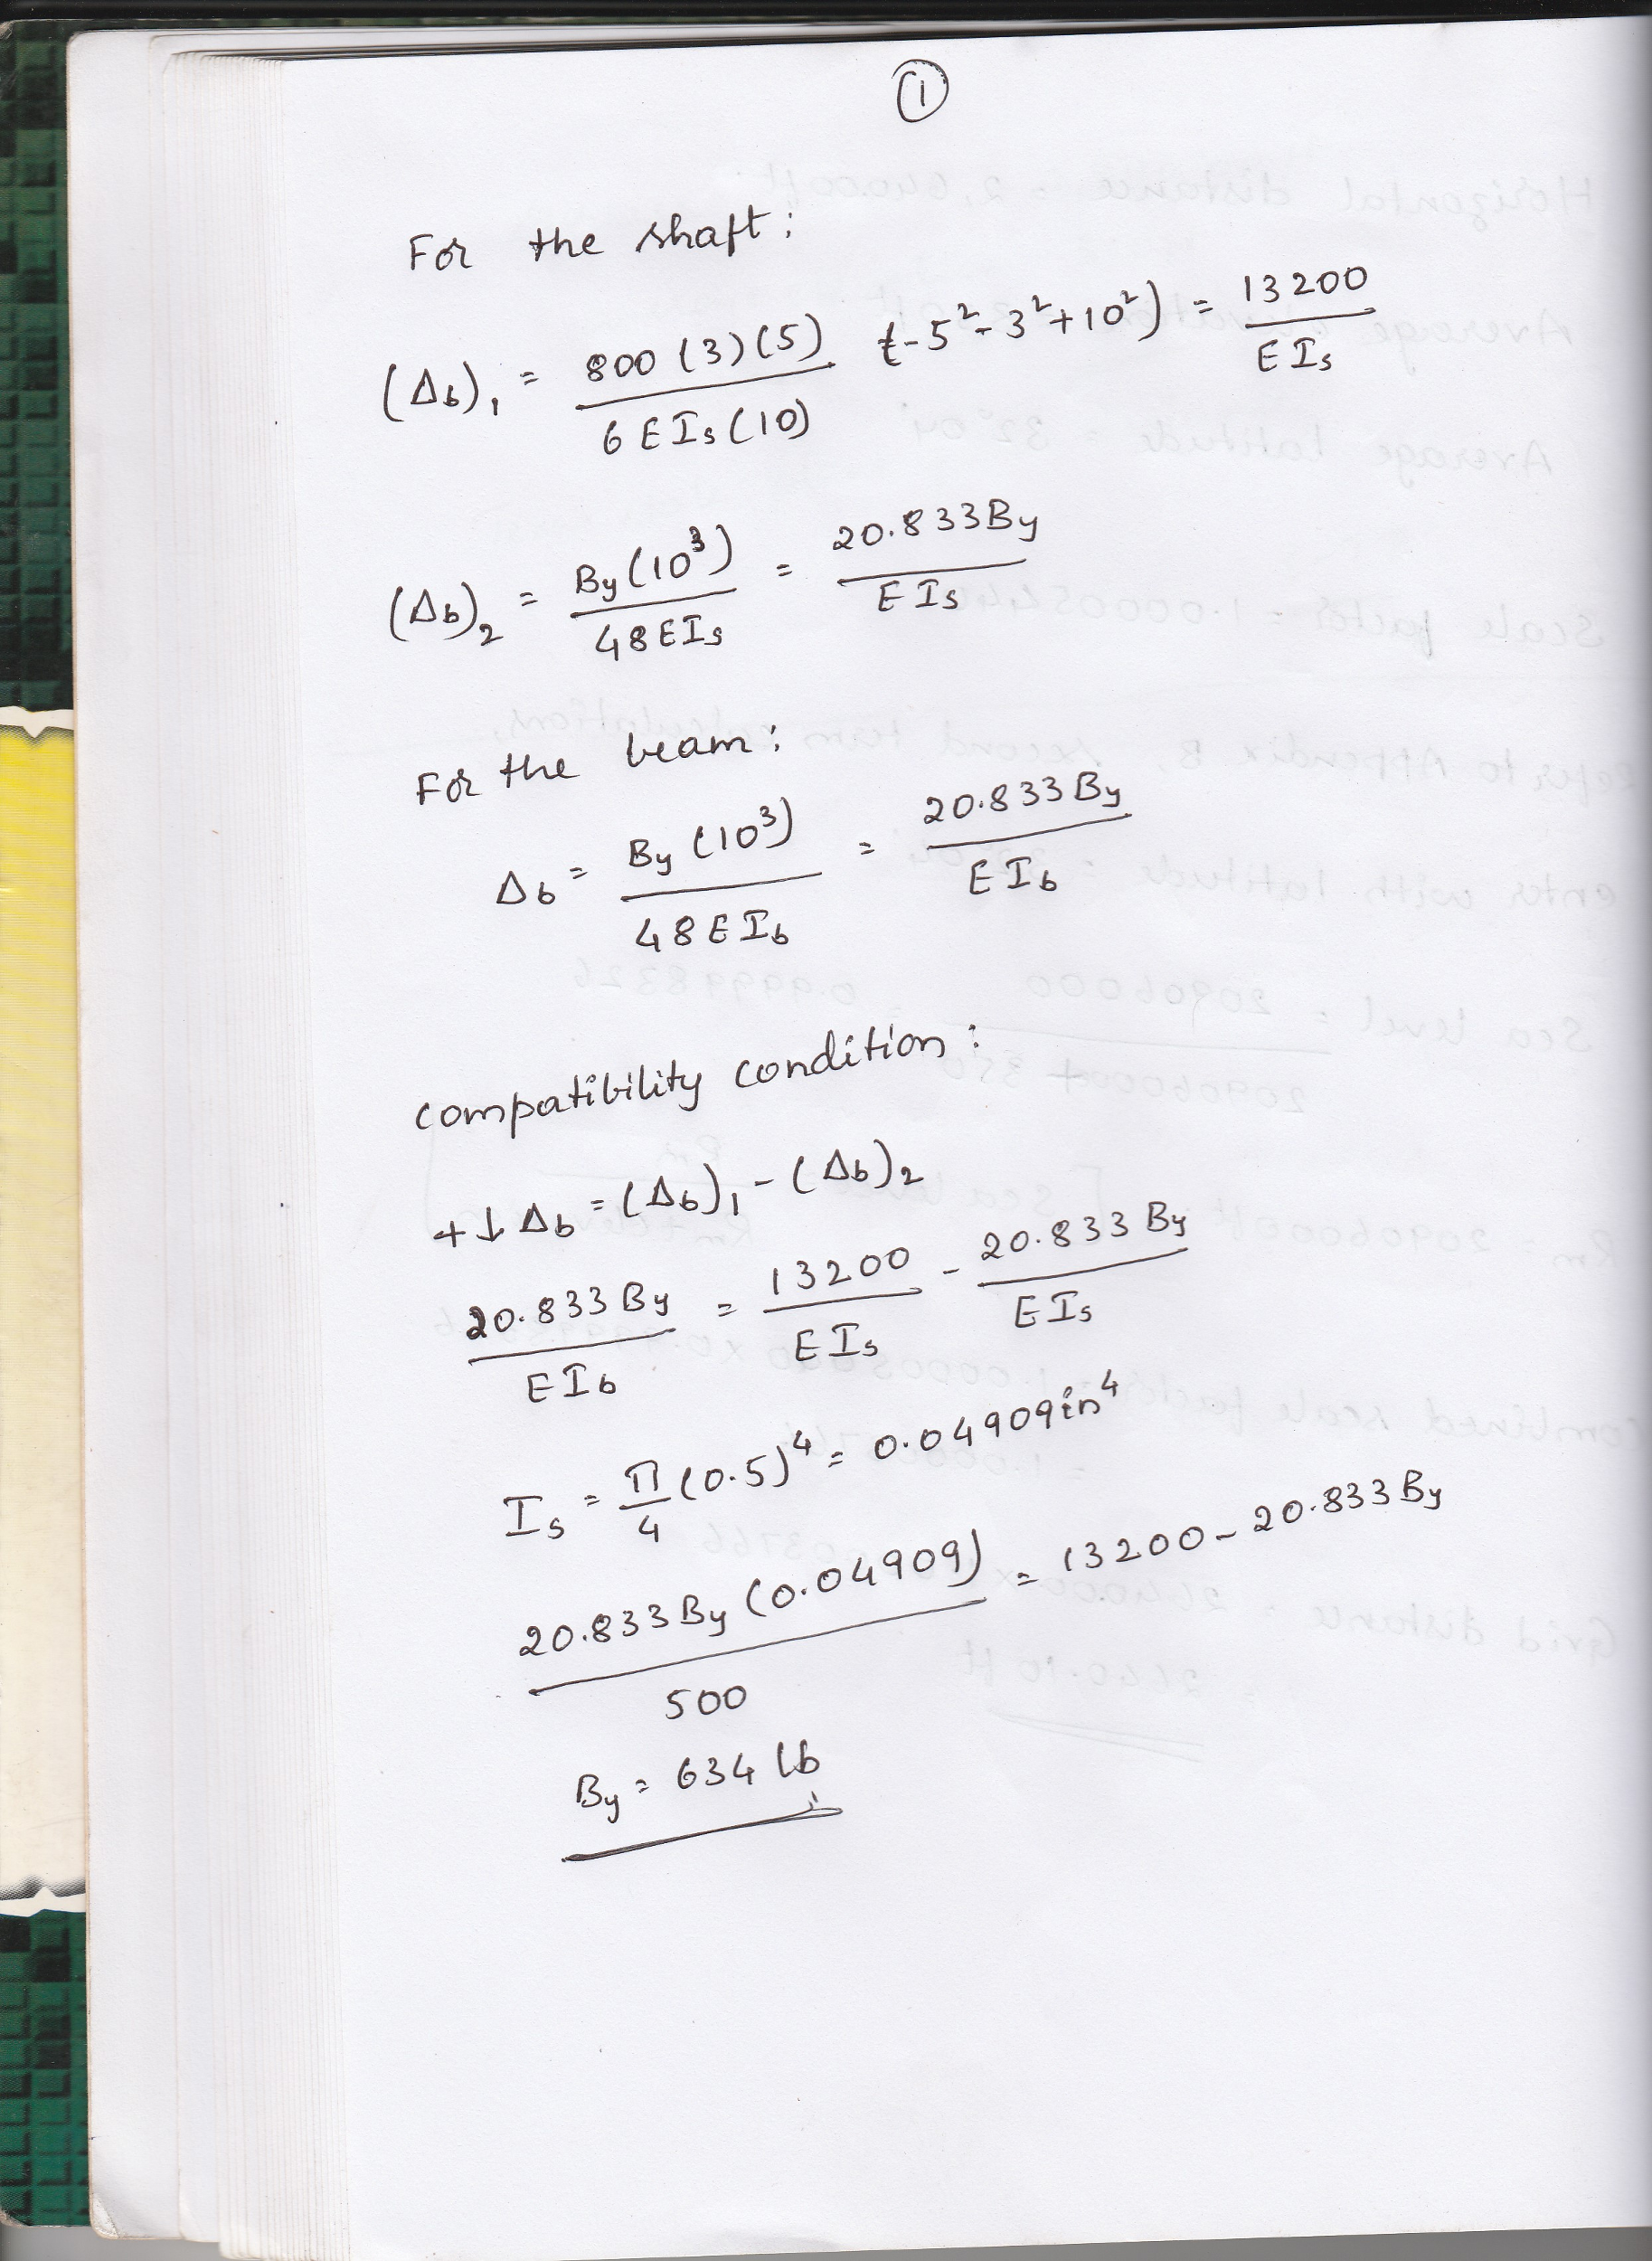 1
For the shaft:
(Δb)₁ = 800 (3)(5) / 6EIs(10) (-5² - 3² + 10²) = 13200 / EIs
(Δb)₂ = By(10³) / 48EIs = 20.833By / EIs
For the beam:
Δb = By (10³) / 48EIb = 20.833By / EIb
compatibility condition:
+↓ Δb = (Δb)₁ - (Δb)₂
20.833By / EIb = 13200 / EIs - 20.833 By / EIs
Is = π/4 (0.5)⁴ = 0.04909in⁴
20.833By (0.04909) / 500 = 13200 - 20.833By
By = 634 lb